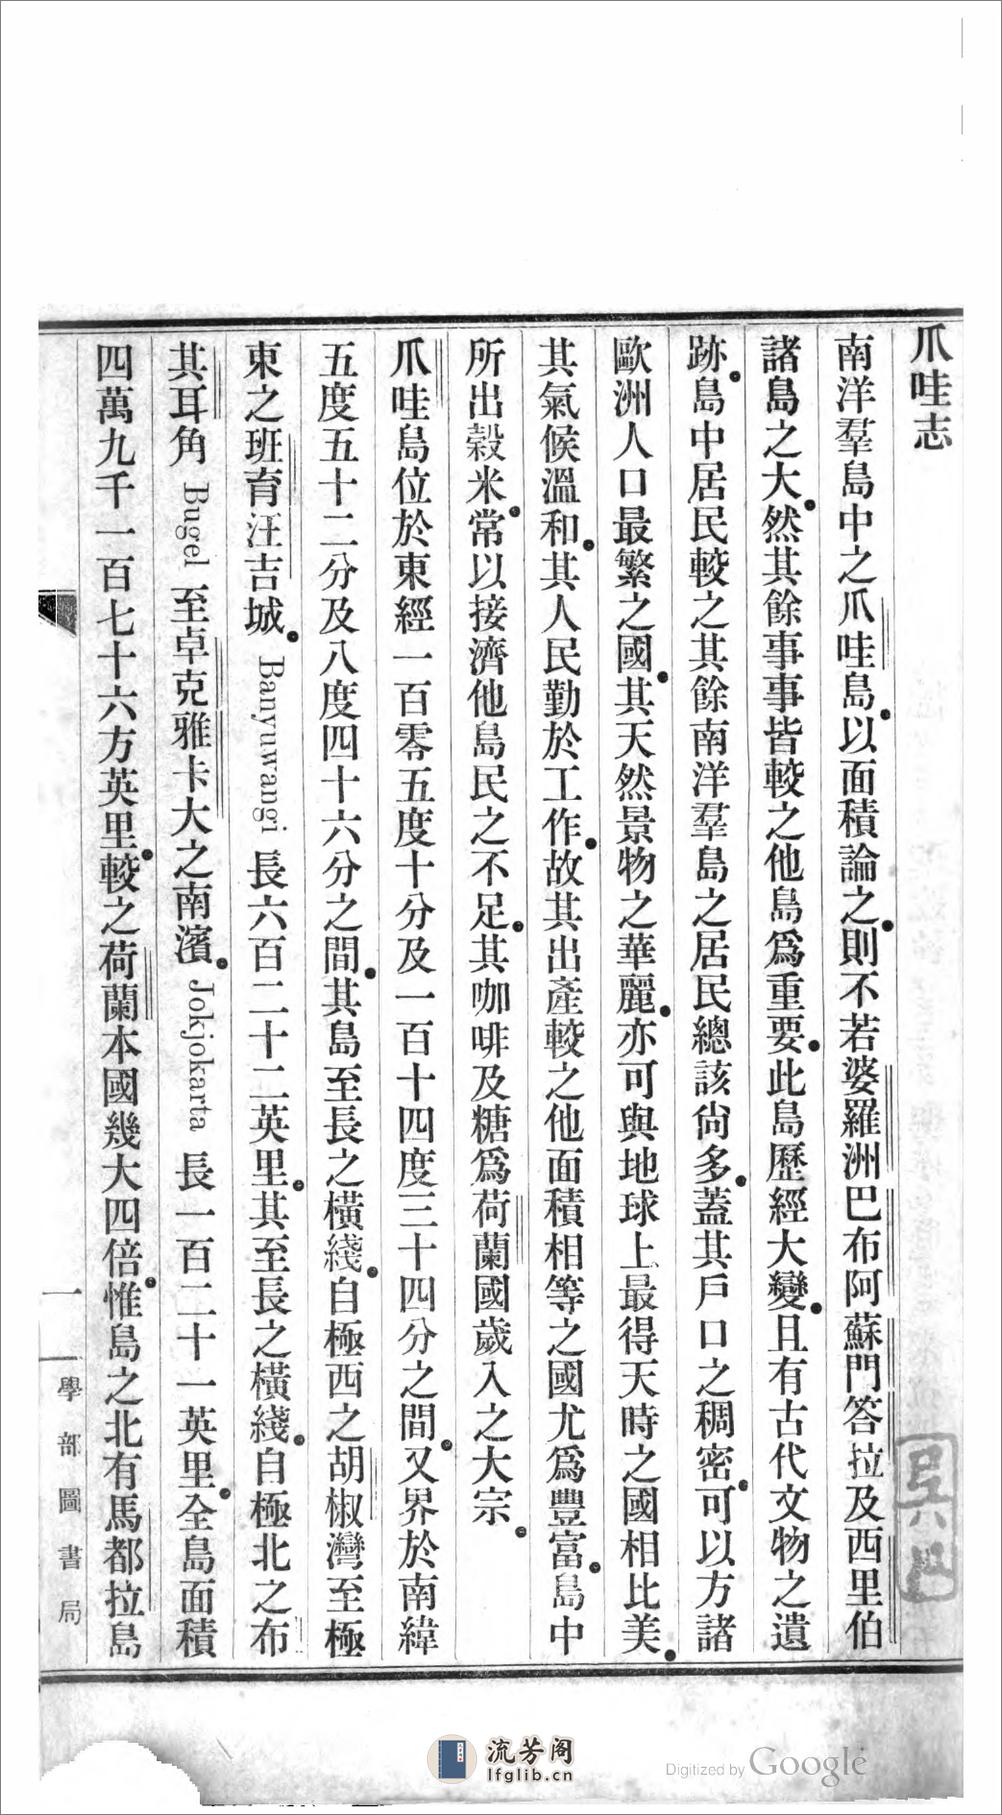 爪哇志
南洋羣島中之爪哇島以面積論之則不若婆羅洲巴布阿蘇門答拉及西里伯
諸島之大然其餘事事皆較之他島爲重要此島歷經大變且有古代文物之遺
跡島中居民較之其餘南洋羣島之居民總該尙多蓋其戶口之稠密可以方諸
歐洲人口最繁之國其天然景物之華麗亦可與地球上最得天時之國相比美
其氣候溫和其人民勤於工作故其出產較之他面積相等之國尤爲豐富島中
所出穀米常以接濟他島民之不足其咖啡及糖爲荷蘭國歲入之大宗
爪哇島位於東經一百零五度十分及一百十四度三十四分之間又界於南緯
五度五十二分及八度四十六分之間其島至長之橫綫自極西之胡椒灣至極
東之班育汪吉城 Banyuwangi 長六百二十二英里其至長之橫綫自極北之布
其耳角 Bugel 至卓克雅卡大之南濱 Jokjokarta 長一百二十一英里全島面積
四萬九千一百七十六方英里較之荷蘭本國幾大四倍惟島之北有馬都拉島
一
學部圖書局
流芳阁
lfglib.cn
Digitized by Google